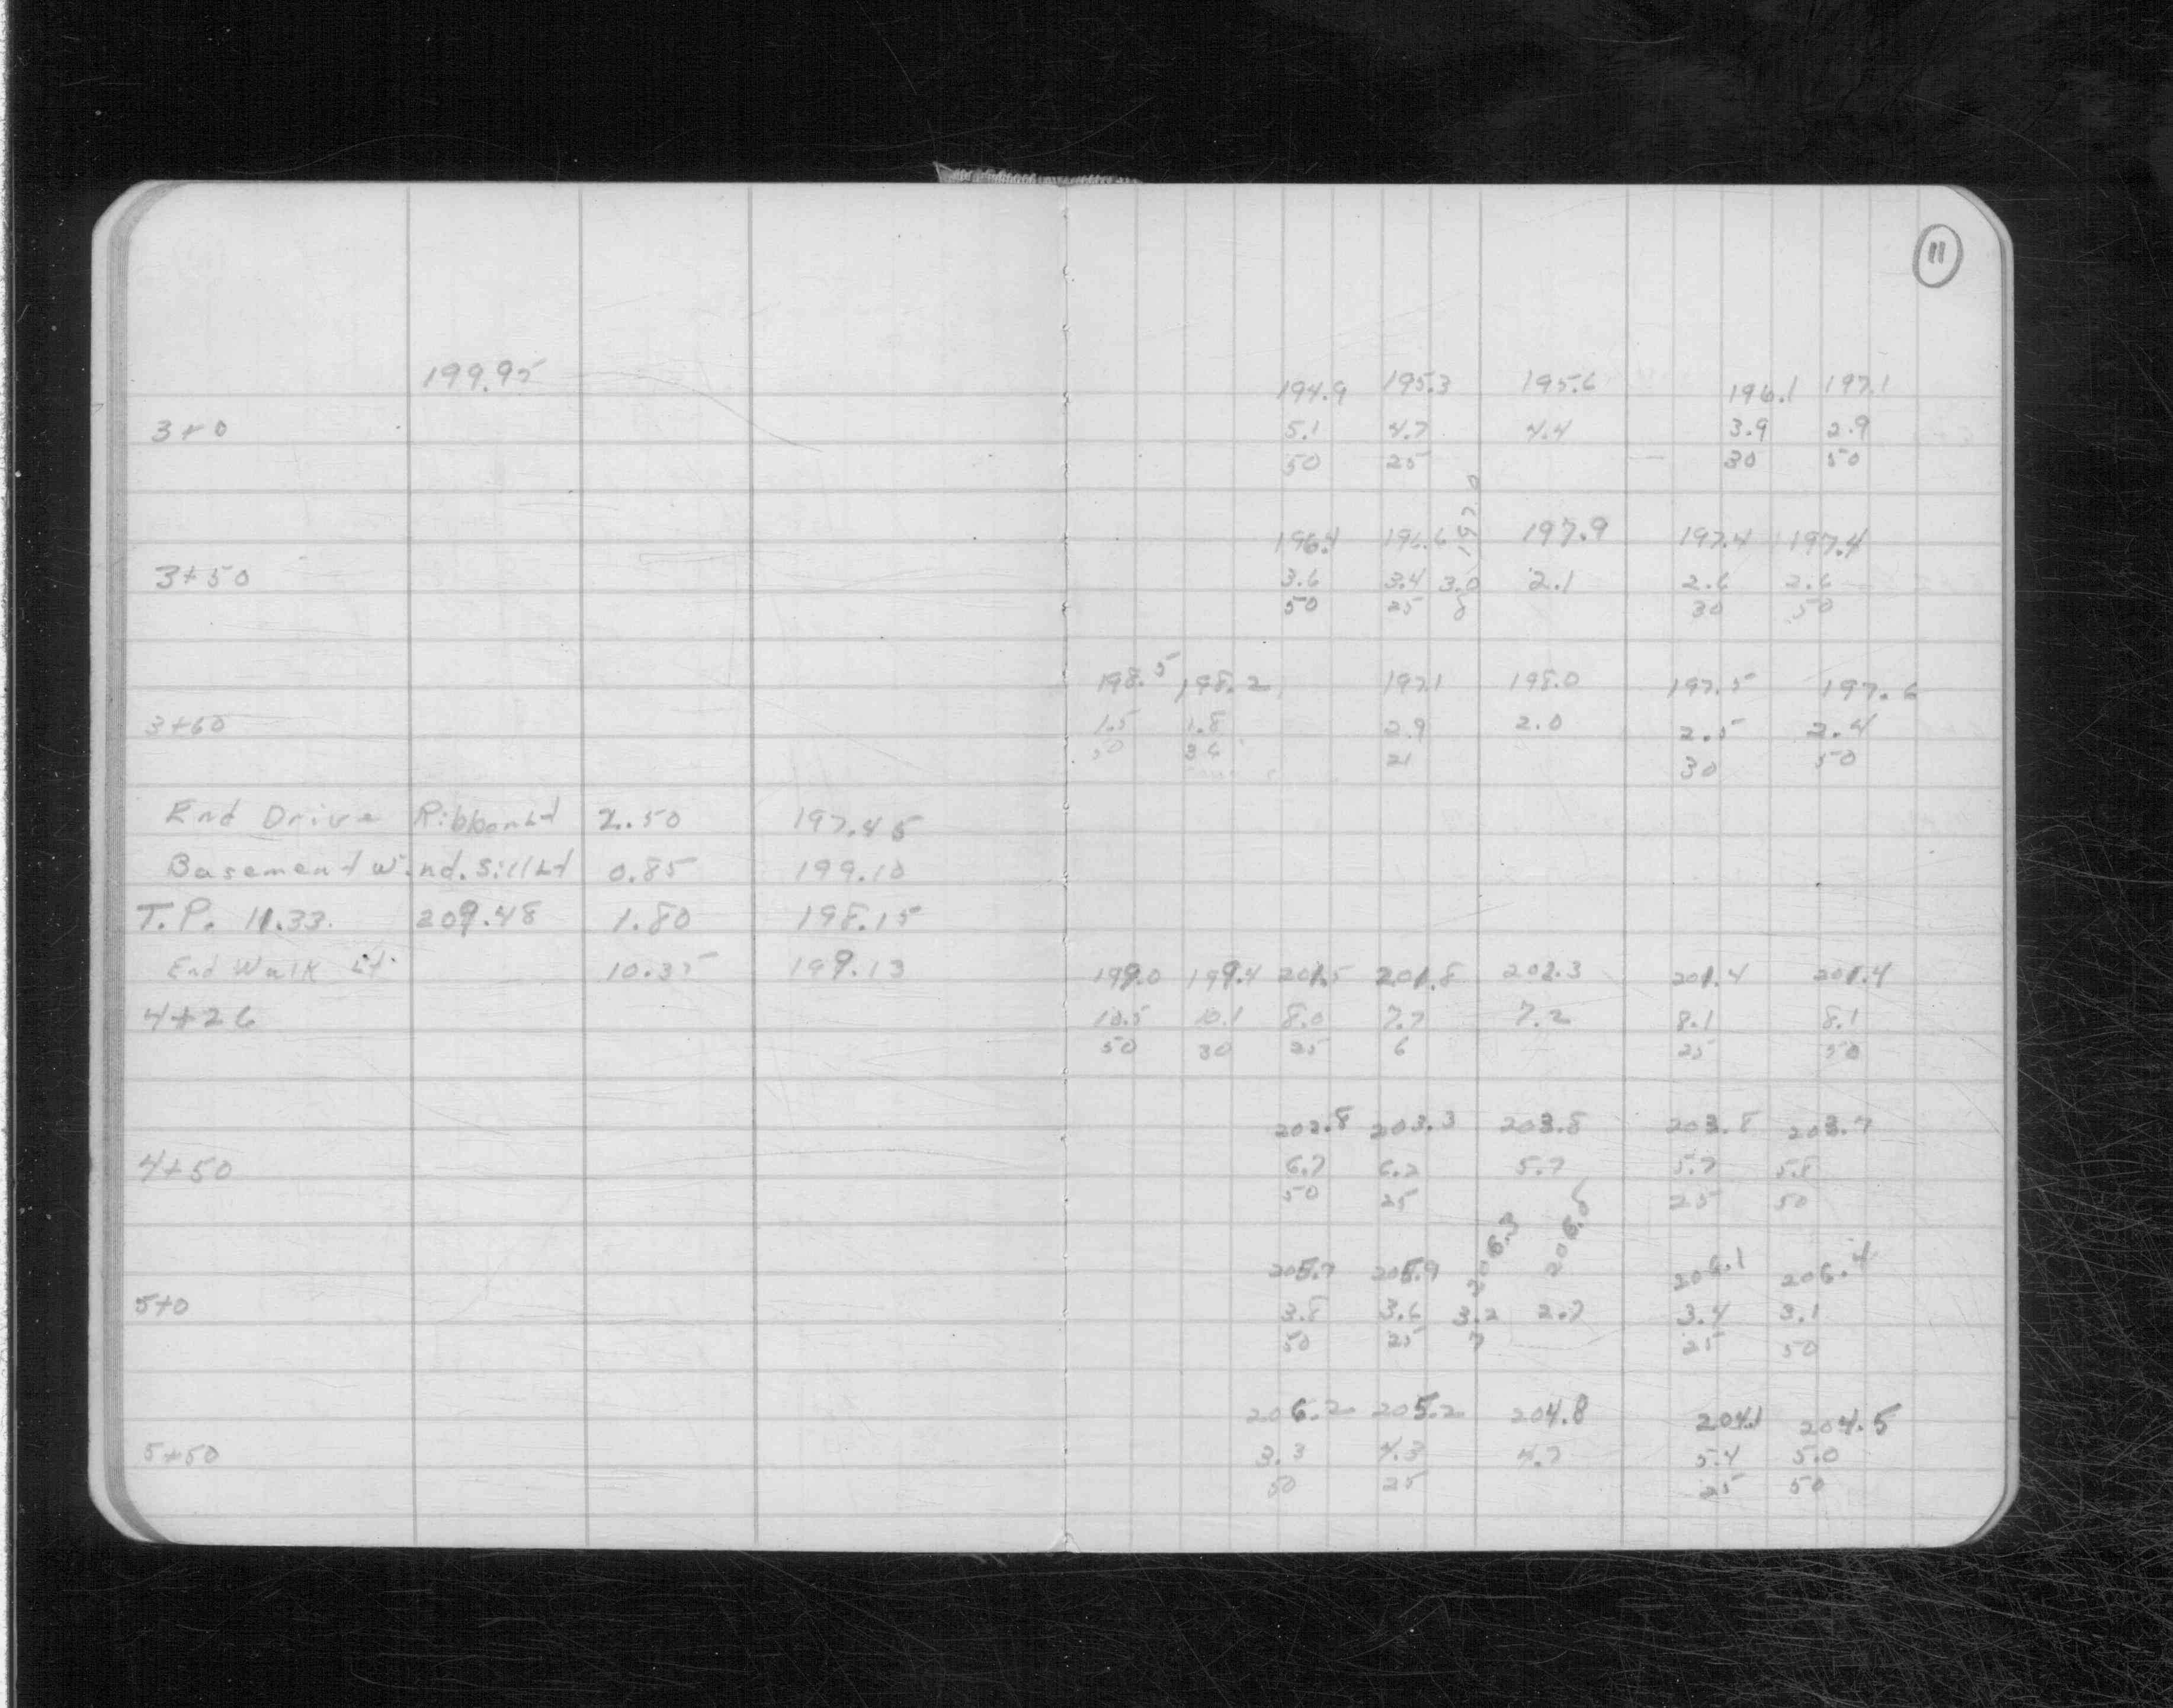 11
199.95
194.9 195.3 195.6 196.1 197.1
3+0 5.1 4.7 4.4 3.9 2.9
50 25 30 50
196.4 196.6 197.0 197.9 197.4 197.4
3+50 3.6 3.4 3.0 2.1 2.6 2.6
50 25 8 30 50
198.5 198.2 197.1 198.0 197.5 197.6
3+60 1.5 1.8 2.9 2.0 2.5 2.4
50 36 21 30 50
End Drive Ribbon Lt 2.50 197.45
Basement Wind. Sill Lt 0.85 199.10
T.P. 11.33 209.48 1.80 198.15
End Walk Lt. 10.35 199.13 199.0 199.4 201.5 201.8 202.3 201.4 201.4
4+26 10.5 10.1 8.0 7.7 7.2 8.1 8.1
50 30 25 6 25 50
202.8 203.3 203.8 203.8 203.7
4+50 6.7 6.2 5.7 5.7 5.8
50 25 25 50
205.7 205.9 206.3 206.8 206.1 206.4
5+0 3.8 3.6 3.2 2.7 3.4 3.1
50 25 7 25 50
206.2 205.2 204.8 204.1 204.5
5+50 3.3 4.3 4.7 5.4 5.0
50 25 25 50